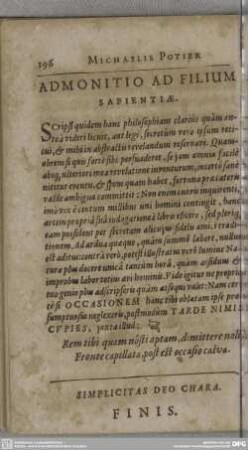 196 MICHAELIS POTIER
ADMONITIO AD FILIUM
SAPIENTIÆ.
Scripsi quidem hanc philosophiam clariùs quàm an-
teà videri licuit, aut legi, secretum verò ipsum reti-
cui, & mihi in abstractu revelandum reservare. Quam-
obrem si quis fortè sibi persuaserit, se jam omnia facilè
absq; ulteriori mea revelatione inventurum, incerto sanè
nititur eventu, & spem quam habet, fortunæ præcariæ
valde ambiguæ committit: Non enim omni inquirenti,
imò vix è centum millibus uni homini contingit, hanc
artem propriâ suâ indagatione à libro elicere, sed pleriq;
eam possident per secretam alicujus fidelis amici
tionem. Ad ardua quæque, quàm summô labore, nullum
est aditus: contrà verò, potest illustratio verè lumine Na-
turæ plus docere unicâ tantùm horâ, quàm assiduus &
improbus labor totius ævi hominis. Vide igitur ne proprio
tuo genio plus adscripseris quàm assequi valet: Nam cer-
tè si OCCASIONEM hanc tibi oblatam ipse præ-
sumptuosus neglexeris, postmodum TARDE NIMIS
CUPIES, juxta illud:
Rem tibi quam nôsti aptam, dimittere noli:
Fronte capillata, post est occasio calva.
SIMPLICITAS DEO CHARA.
FINIS.